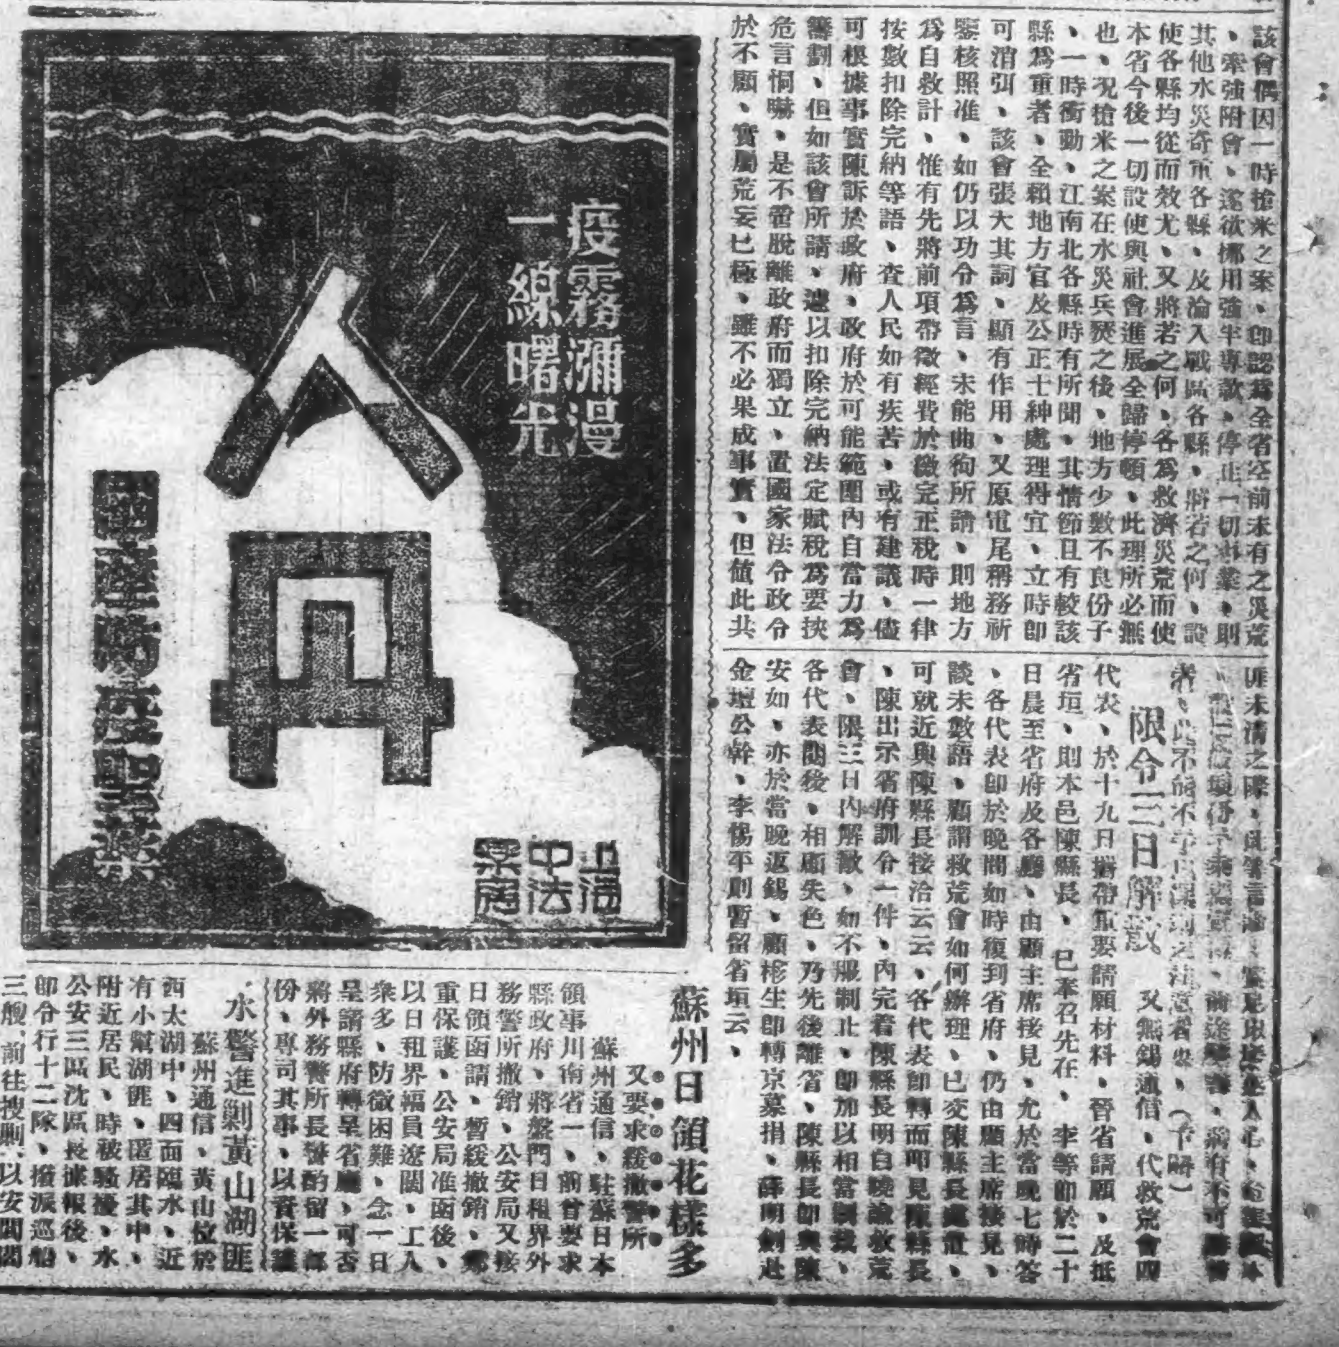 該會偶因一時搶米之案、卽認爲全省空前未有之災荒
、牽強附會、遂欲挪用強半專款、停止一切事業、則
其他水災奇重各縣、及淪入戰區各縣、將若之何、設
使各縣均從而效尤、又將若之何、各爲救濟災荒而使
本省今後一切設使與社會進展全歸停頓、此理所必無
也、况搶米之案在水災兵燹之後、地方少數不良份子
、一時衝動、江南北各縣時有所聞、其情節且有較該
縣爲重者、全賴地方官及公正士紳處理得宜、立時卽
可消弭、該會張大其詞、顯有作用、又原電尾稱務祈
鑒核照准、如仍以功令爲言、未能曲徇所請、則地方
爲自救計、惟有先將前項帶徵經費於徵完正稅時一律
按數扣除完納等語、查人民如有疾苦、或有建議、儘
可根據事實陳訴於政府、政府於可能範圍內自當力爲
籌劃、但如該會所請、遽以扣除完納法定賦稅爲要挾
危言恫嚇、是不啻脫離政府而獨立、置國家法令政令
於不顧、實屬荒妄已極、雖不必果成事實、但値此共
匪未清之際、
者、此不能不
(下略)
限令三日解散
又無錫通信、代救荒會四
代表、於十九日攜帶重要請願材料、晉省請願、及抵
省垣、則本邑陳縣長、已奉召先在、李等卽於二十
日晨至省府及各廳、由顧主席接見、允於當晚七時答
、各代表卽於晚間如時復到省府、仍由顧主席接見、
談未數語、顧謂救荒會如何辦理、已交陳縣長處置、
可就近與陳縣長接洽云云、各代表卽轉而叩見陳縣長
、陳出示省府訓令一件、內完着陳縣長明白曉諭救荒
會、限三日內解散、如不服制止、卽加以相當制裁、
各代表閱後、相顧失色、乃先後離省、陳縣長卽與陳
安如、亦於當晚返錫、顧彬生卽轉京募捐、薛明劍赴
金壇公幹、李惕平則暫留省垣云、
疫霧瀰漫
一線曙光
人丹
國產防疫聖藥
上海
中法
藥房
蘇州日領花樣多
又要求緩撤警所
蘇州通信、駐蘇日本
領事川南省一、前曾要求
縣政府、將盤門日租界外
務警所撤銷、公安局又接
日領函請、暫緩撤銷、鄭
重保護、公安局准函後、
以日租界幅員遼闊、工人
衆多、防徵困難、念一日
呈請縣府轉呈省廳、可否
將外務警所長警酌留一部
份、專司其事、以資保護
水警進剿黃山湖匪
蘇州通信、黃山位於
西太湖中、四面臨水、近
有小幫湖匪、匿居其中、
附近居民、時被騷擾、水
公安三區沈區長據報後、
卽令行十二隊、撥派巡船
三艘、前往搜剿、以安閭閻